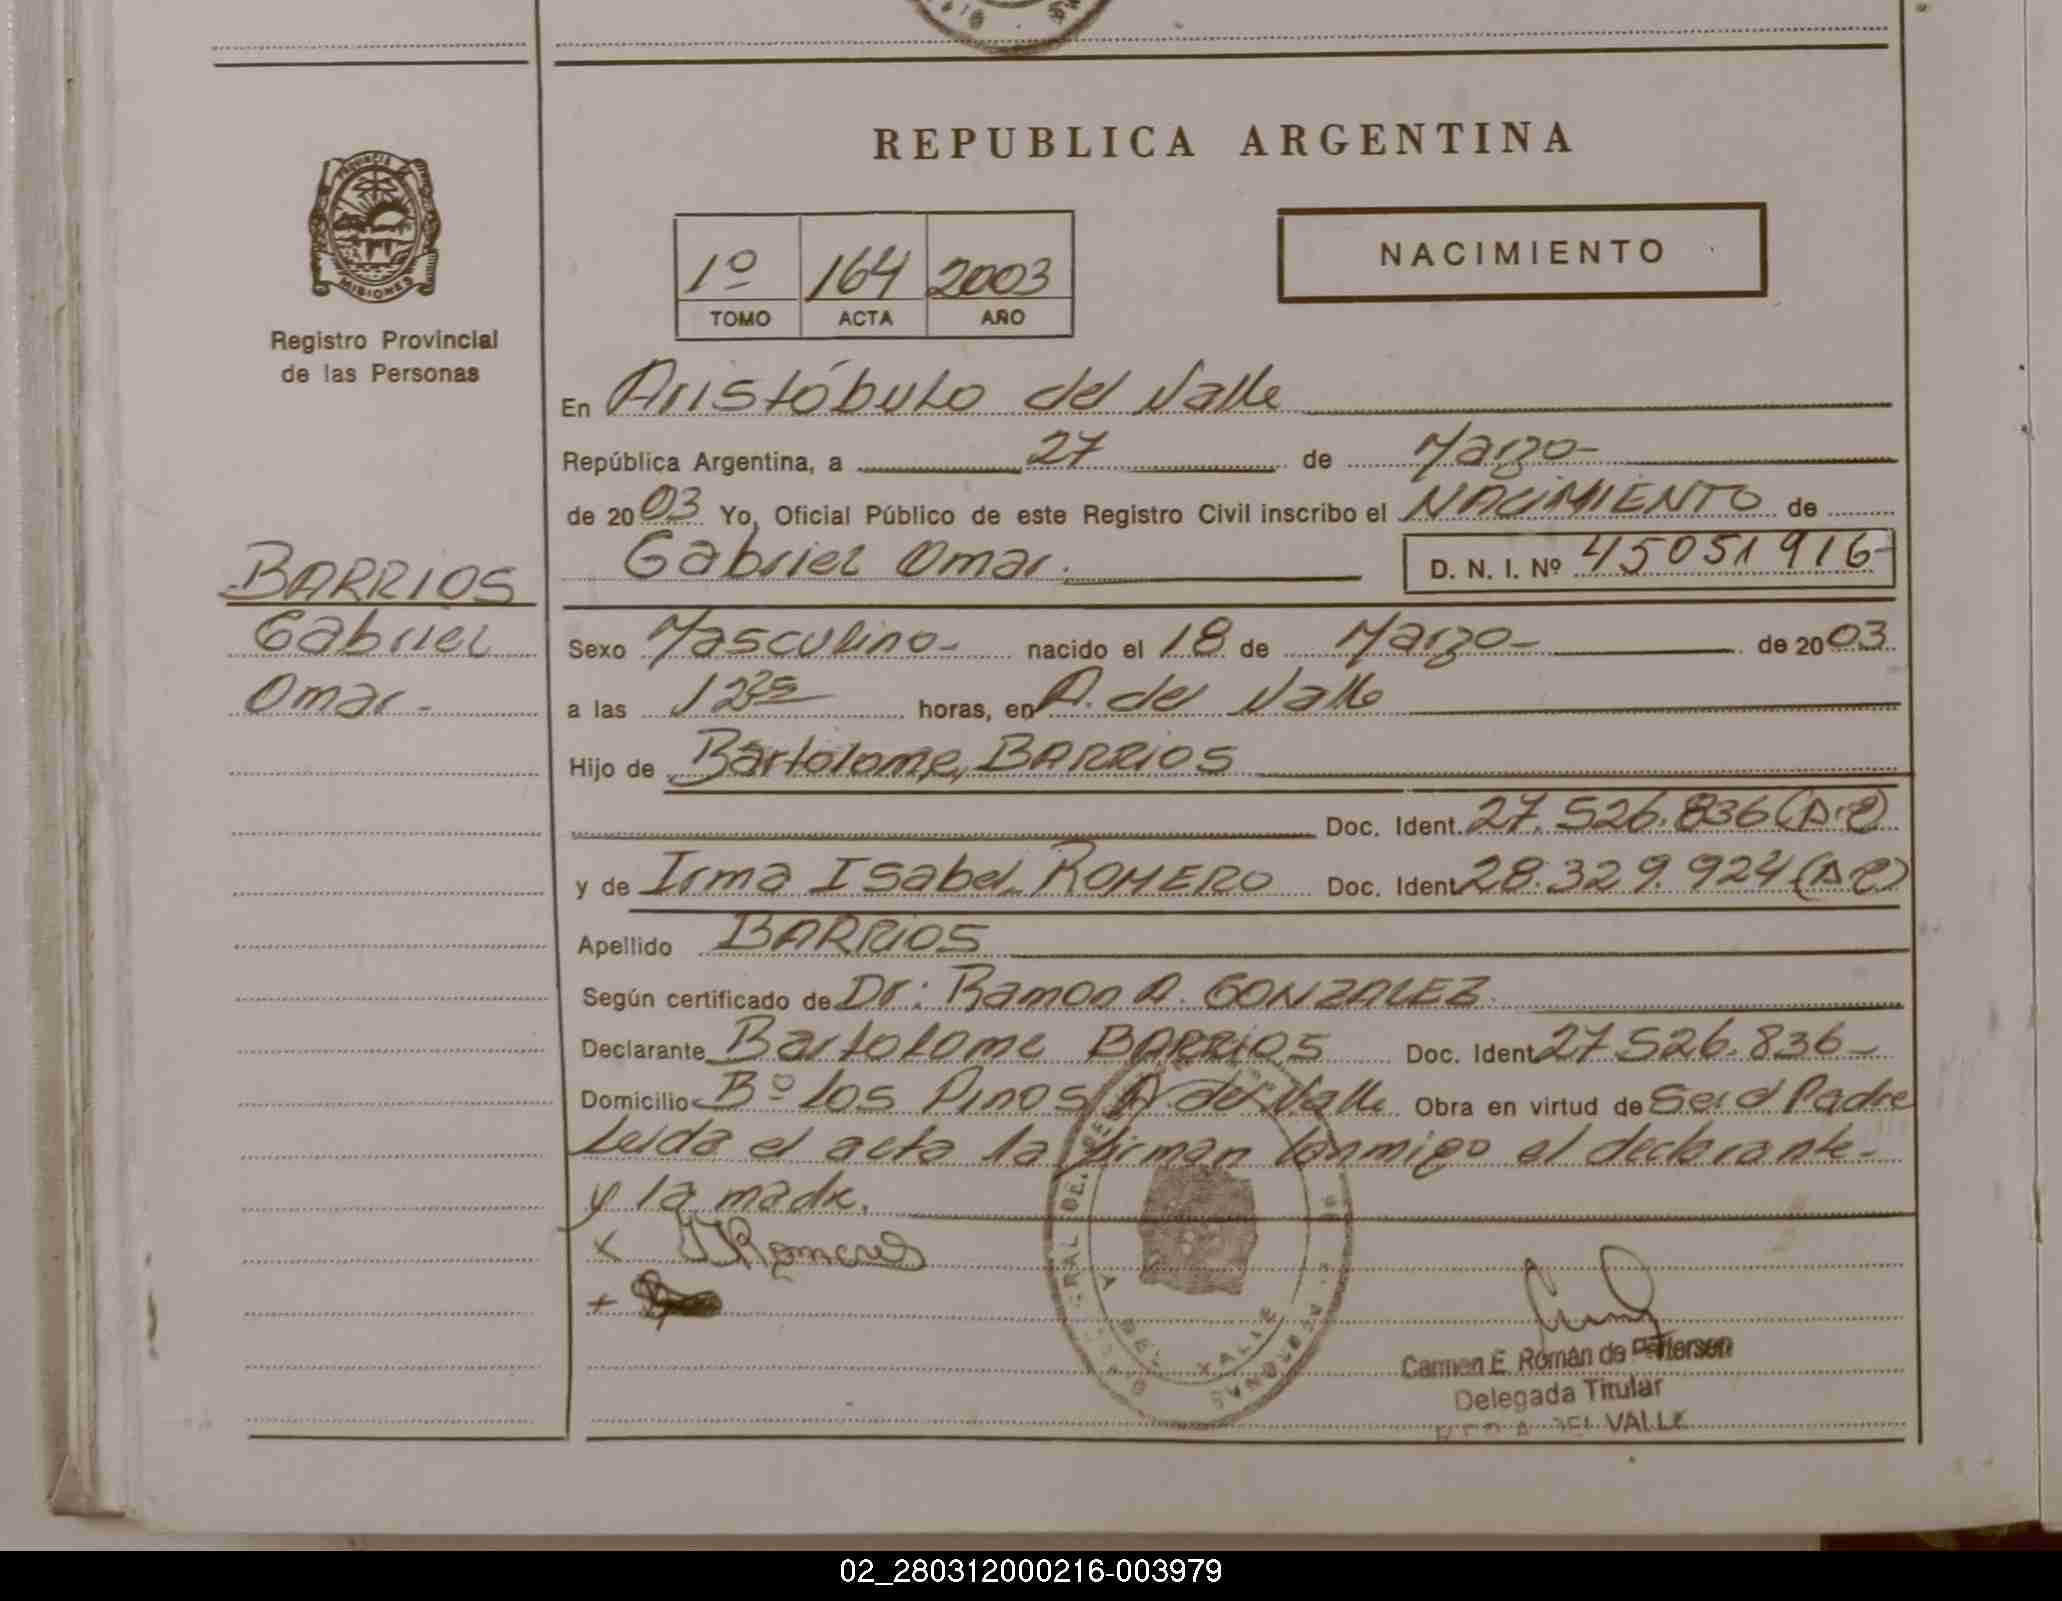 REPUBLICA ARGENTINA
PROVINCIA
MISIONES
Registro Provincial
de las Personas
1º 164 2003
TOMO ACTA AÑO
NACIMIENTO
En Aristóbulo del Valle
República Argentina, a 27 de Marzo
de 2003 Yo, Oficial Público de este Registro Civil inscribo el NACIMIENTO de
Gabriel Omar. D. N. I. Nº 45051916
BARRIOS
Gabriel
Omar.
Sexo Masculino nacido el 18 de Marzo de 2003
a las horas, en A. del Valle
Hijo de Bartolome, BARRIOS
Doc. Ident. 27.526.836
y de Irma Isabel ROMERO Doc. Ident 28.329.924
Apellido BARRIOS
Según certificado de Dr: Ramon A. GONZALEZ
Declarante Bartolome BARRIOS Doc. Ident 27.526.836
Domicilio Bº Los Pinos A del Valle Obra en virtud de Ser el Padre
Leida el acta la firman conmigo el declarante
y la madre.
x I Romero
+
DEL VALLE
Carmen E. Román de Pettersen
Delegada Titular
DEL VALLE
02_280312000216-003979